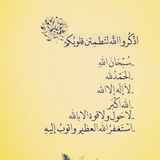 اذكروا الله لتطمئن قلوبكم
ـ سبحان الله
ـ الحمد لله
ـ لا إله إلا الله
ـ الله أكبر
ـ لا حول ولا قوة إلا بالله
ـ استغفر الله العظيم وأتوب إليه